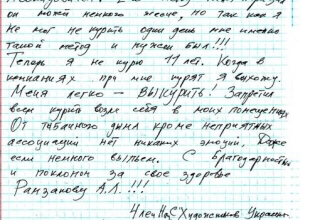 он может немного жестче, но так как я
не мог не курить один день мне именно
такой метод и нужен был!!!
Теперь я не курю 11 лет. Когда в
компаниях при мне курят я выхожу.
Меня легко — ВЫКУРИТЬ! Запретил
всем курить возле себя в моих помещениях
От табачного дыма кроме неприятных
ассоциаций нет никаких эмоций, Даже
если немного выпьем. С благодарностью
и поклоном за свое здоровье
Рамзанову А.Л. !!!
Член НСХудожников Украины